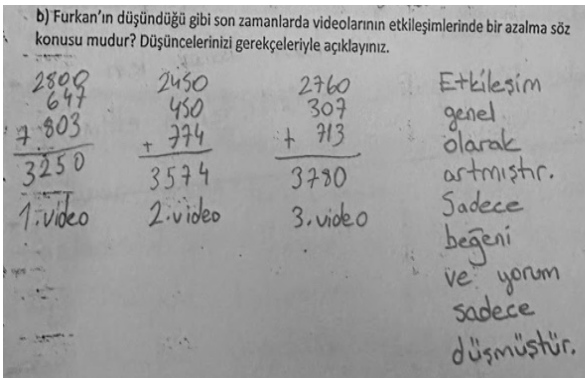 b) Furkan'ın düşündüğü gibi son zamanlarda videolarının etkileşimlerinde bir azalma söz
konusu mudur? Düşüncelerinizi gerekçeleriyle açıklayınız.
2800
647
+ 803
3250
1. video
2450
450
+ 774
3574
2. video
2760
307
+ 713
3780
3. video
Etkileşim
genel
olarak
artmıştır.
Sadece
beğeni
ve yorum
sadece
düşmüştür.